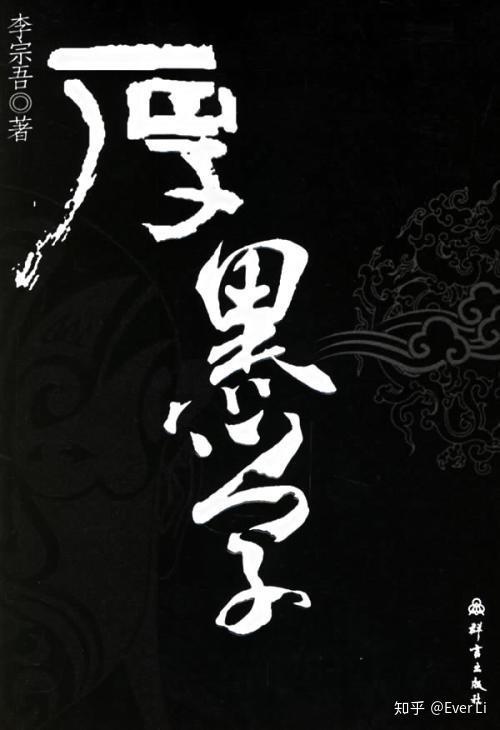 李宗吾◎著
厚黑学
群言出版社
知乎 @EverLi